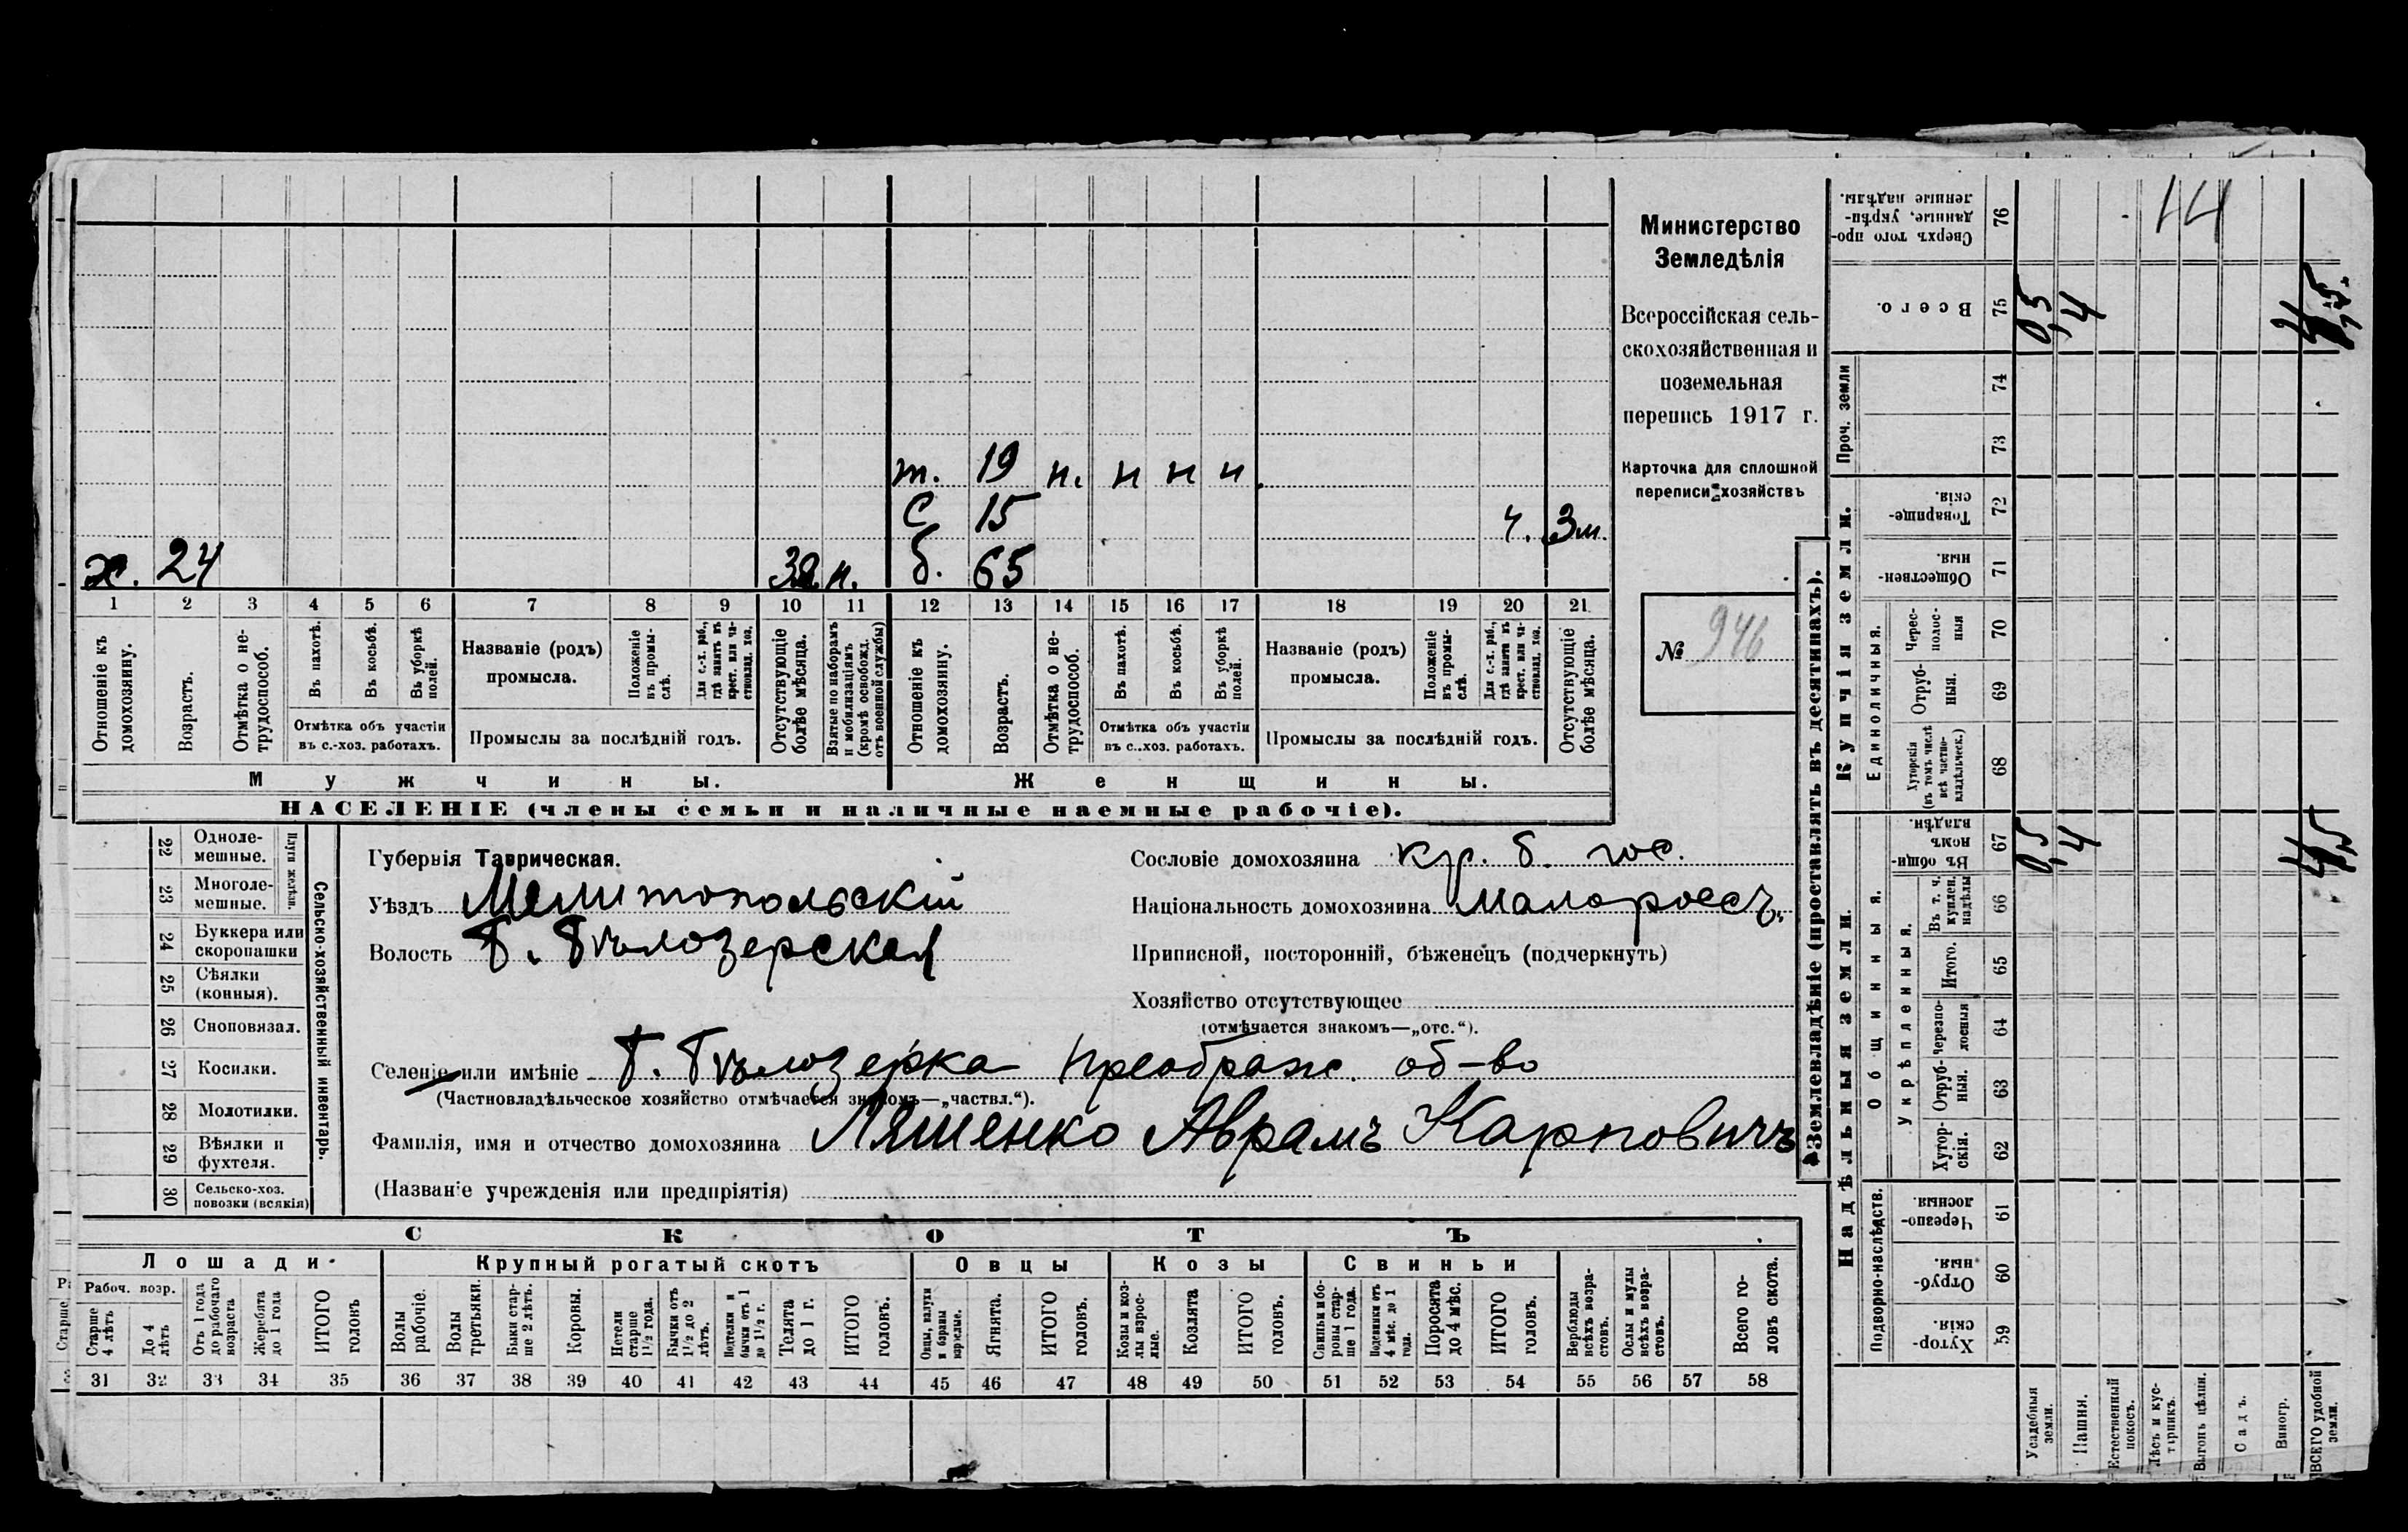 т. 19 н. н н н.
С 15 ч. 3 м.
х. 24 н. б. 65
1 2 3 4 5 6 7 8 9 10 11 12 13 14 15 16 17 18 19 20 21
Отношеніе къ домохозяину.
Возрастъ.
Отмѣтка о нетрудоспособ.
Въ пахотѣ.
Въ косьбѣ.
Въ уборкѣ полей.
Отмѣтка объ участіи
въ с.-хоз. работахъ.
Названіе (родъ)
промысла.
Положеніе въ промыслѣ.
Для с.-х. раб., гдѣ занятъ въ крест. или частновлад. хоз.
Промыслы за послѣдній годъ.
Отсутствующіе болѣе мѣсяца.
Взятые по наборамъ и мобилизаціямъ (кромѣ освобожд. отъ военной службы)
Отношеніе къ домохозяину.
Возрастъ.
Отмѣтка о нетрудоспособ.
Въ пахотѣ.
Въ косьбѣ.
Въ уборкѣ полей.
Отмѣтка объ участіи
въ с..хоз. работахъ.
Названіе (родъ)
промысла.
Положеніе въ промыслѣ.
Для с.-х. раб., гдѣ занята въ крест. или частновлад. хоз.
Промыслы за послѣдній годъ.
Отсутствующіе болѣе мѣсяца.
Мужчины.
Женщины.
НАСЕЛЕНІЕ (члены семьи и наличные наемные рабочіе).
Министерство
Земледѣлія
Всероссійская сель-
скохозяйственная и
поземельная
перепись 1917 г.
Карточка для сплошной
переписи хозяйствъ
№ 946
22 Одноле-
мешные.
23 Многоле-
мешные.
Плуги желѣзн.
24 Буккера или
скоропашки
25 Сѣялки
(конныя).
26 Сноповязал.
27 Косилки.
28 Молотилки.
29 Вѣялки и
фухтеля.
30 Сельско-хоз.
повозки (всякія)
Сельско-хозяйственный инвентарь.
Губернія Таврическая.
Уѣздъ Мелитопольскій
Волость Б. Бѣлозерская
Сословіе домохозяина кр. б. гос.
Національность домохозяина малороссъ.
Приписной, посторонній, бѣженецъ (подчеркнуть)
Хозяйство отсутствующее
(отмѣчается знакомъ—„отс.“).
Селеніе или имѣніе Б. Бѣлозерка Преображ. об-во
(Частновладѣльческое хозяйство отмѣчается знакомъ—„частвл.“).
Фамилія, имя и отчество домохозяина Ляшенко Аврамъ Карповичъ
(Названіе учрежденія или предпріятія)
СКОТЪ
Лошади
Крупный рогатый скотъ
Овцы
Козы
Свиньи
Рабоч. возр.
Старше 4 лѣтъ
До 4 лѣтъ
Отъ 1 года до рабочаго возраста
Жеребята до 1 года
ИТОГО головъ
Волы рабочіе.
Волы третьяки.
Быки старше 2 лѣтъ.
Коровы.
Нетели старше 1 1/2 года.
Бычки отъ 1 1/2 до 2 лѣтъ.
Подтелки и бычки отъ 1 до 1 1/2 г.
Телята до 1 г.
ИТОГО головъ.
Овцы, валухи и бараны взрослые.
Ягнята.
ИТОГО головъ.
Козы и козлы взрослые.
Козлята
ИТОГО головъ.
Свиньи и боровы старше 1 года.
Подсвинки отъ 4 мѣс. до 1 года.
Поросята до 4 мѣс.
ИТОГО головъ.
Верблюды всѣхъ возрастовъ.
Ослы и мулы всѣхъ возрастовъ.
Всего головъ скота.
31 32 33 34 35 36 37 38 39 40 41 42 43 44 45 46 47 48 49 50 51 52 53 54 55 56 57 58
Землевладѣніе (проставлять въ десятинахъ).
Надѣльныя земли.
Купчія земли.
Проч. земли
Сверхъ того проданные, укрѣпленные надѣлы. 76
14
Всего. 75 0,5 ,4
74
73
Товарищескія. 72
Общественныя. 71
Единоличныя.
Чересполосныя 70
Отрубныя. 69
Хуторскія (въ томъ числѣ всѣ частновладѣльческ.) 68
Общинныя.
Въ общинномъ владѣн. 67 0,5 ,4
Укрѣпленныя.
Въ т. ч. куплен. надѣлы 66
Итого. 65
Черезполосныя 64
Отрубныя. 63
Хуторскія. 62
Подворно-наслѣдств.
Черезполосныя. 61
Отрубныя. 60
Хуторскія. 59
Усадебныя земли.
Пашня.
Естественный покосъ.
Лѣсъ и кустарникъ.
Выгонъ цѣлин.
Садъ.
Виногр.
ВСЕГО удобной земли.